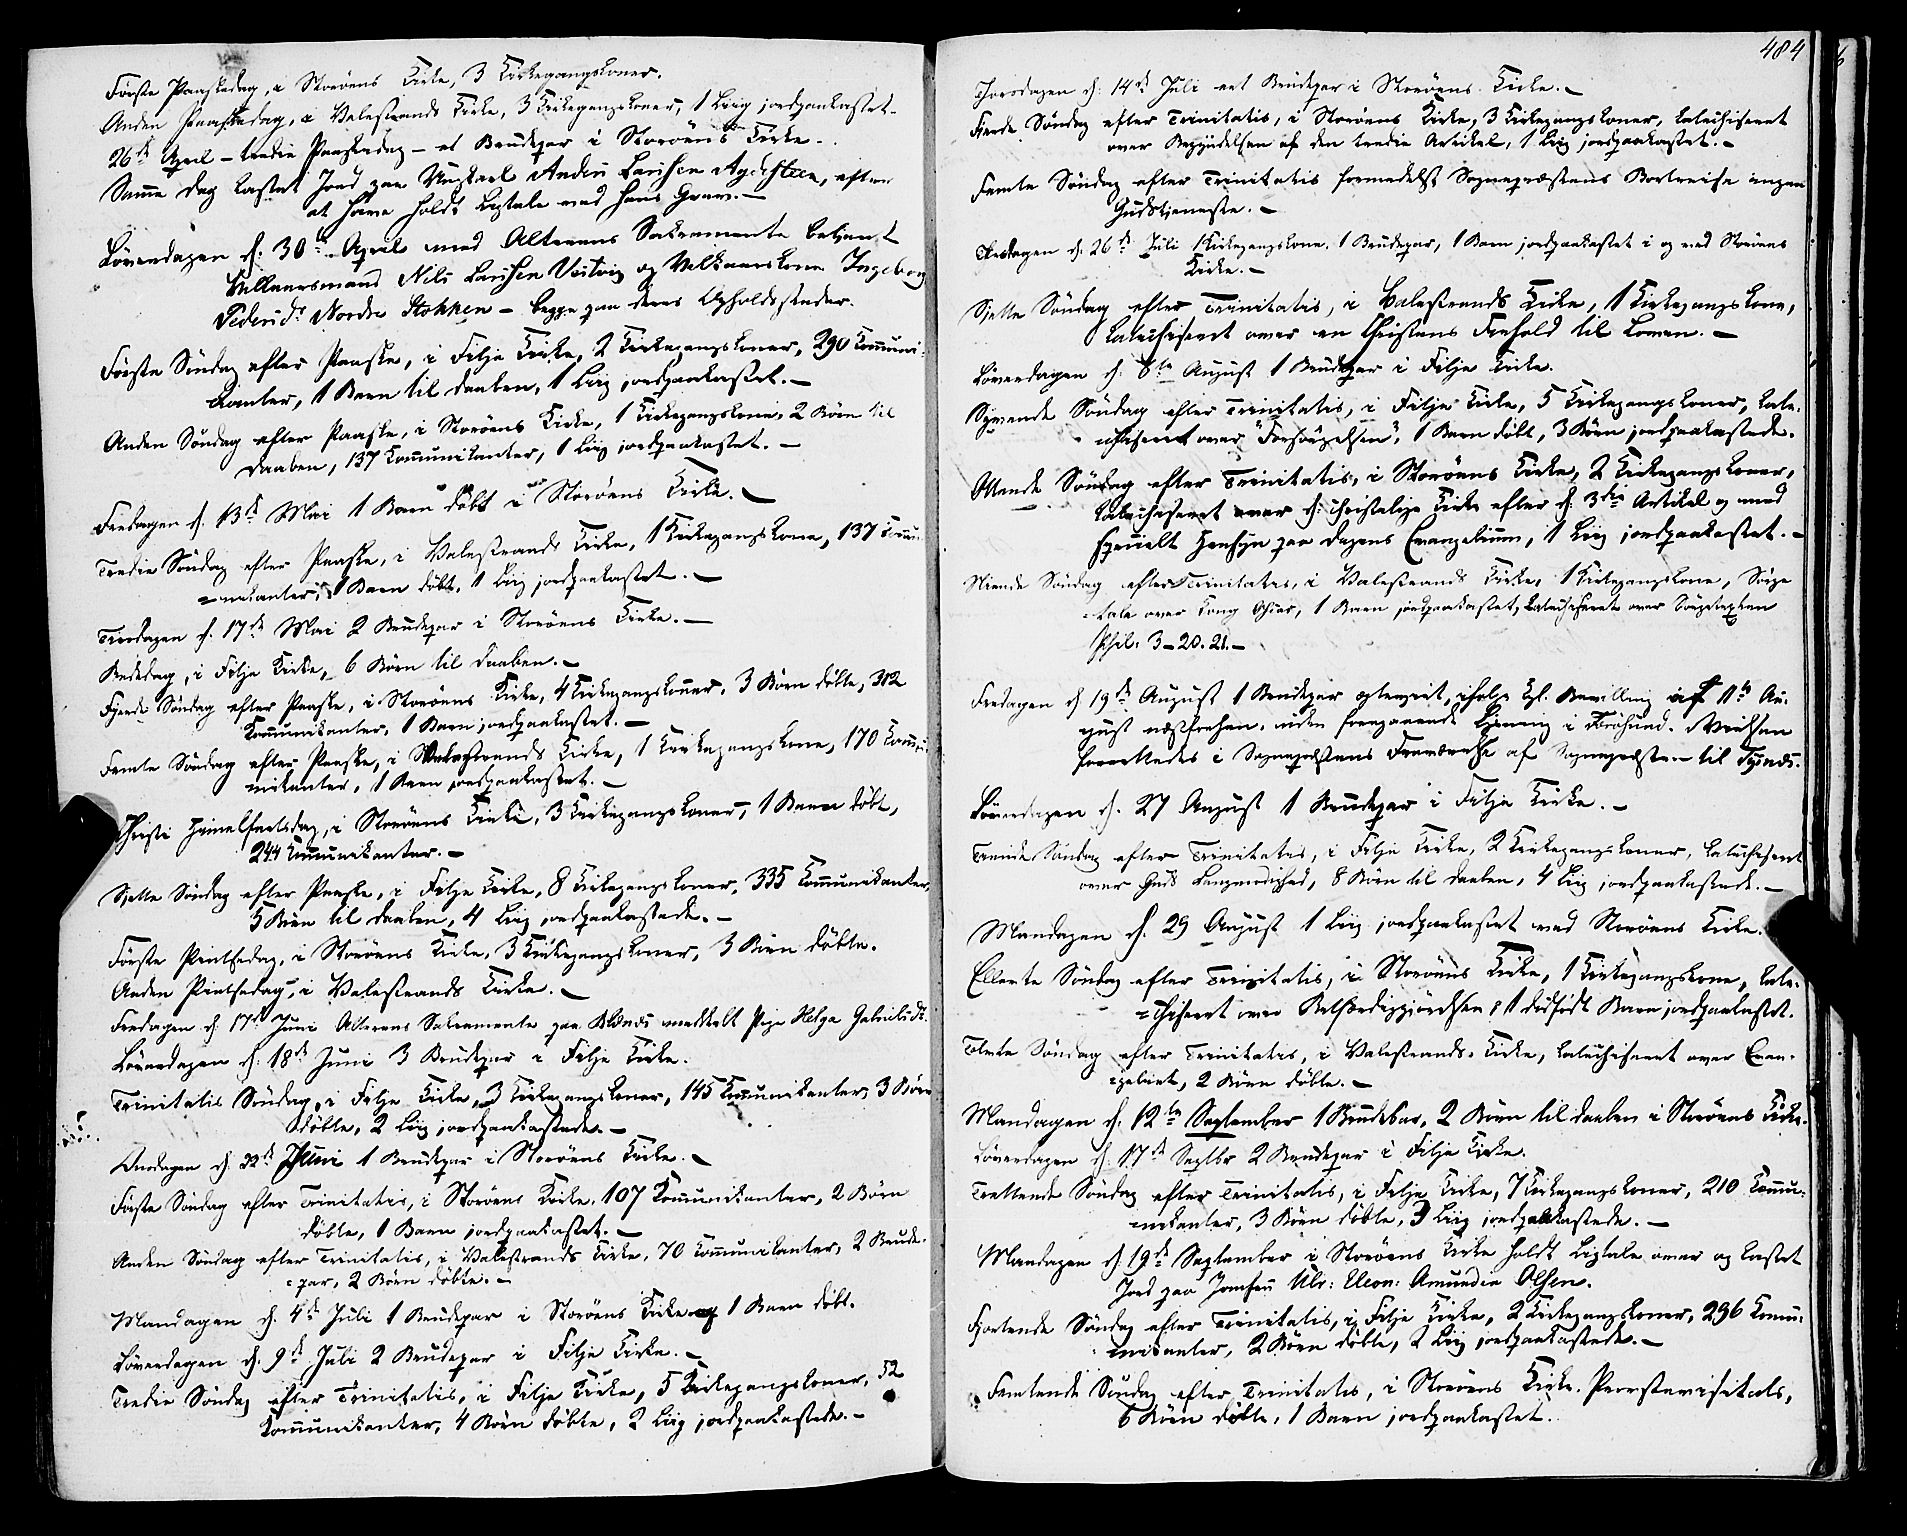 Første Paaskedag, i Storøens Kirke, 3 Kirkegangskoner.
Anden Paaskedag, i Valestrands Kirke, 3 Kirkegangskoner, 1 Liig jordpaakastet.
26de April – tredie Paaskedag – et Brudepar i Storøens Kirke.
Samme Dag kastet Jord paa Ungkarl Anders Larssen Agdesteen, efter
at have holdt Ligtale ved hans Grav. –
Løverdagen d. 30te April med Alterens Sakramente betjent
Vilkaarsmand Nils Larssen Vestvig og Vilkaarskone Ingeborg
Pedersdr Nordre Stokken – begge paa deres Opholdssteder.
Første Søndag efter Paaske, i Fitje Kirke, 2 Kirkegangskoner, 290 Kommuni-
kanter, 1 Barn til Daaben, 1 Liig jordpaakastet. –
Anden Søndag efter Paaske, i Storøens Kirke, 1 Kirkegangskone, 2 Børn til
Daaben, 137 Kommunikanter, 1 Liig jordpaakastet. –
Fredagen d. 13de Mai 1 Barn døbt i Storøens Kirke. –
Tredie Søndag efter Paaske, i Valestrands Kirke, 1 Kirkegangskone, 137 Kommu-
=nikanter, 1 Barn døbt, 1 Liig jordpaakastet. –
Tirsdagen d. 17de Mai 2 Brudepar i Storøens Kirke. –
Bededag, i Fitje Kirke, 6 Børn til Daaben. –
Fjerde Søndag efter Paaske, i Storøens Kirke, 4 Kirkegangskoner, 3 Børn døbte, 312
Kommunikanter, 1 Barn jordpaakastet. –
Femte Søndag efter Paaske, i Valestrands Kirke, 1 Kirkegangskone, 170 Kommu-
nikanter, 1 Barn jordpaakastet. –
Christi Himmelfartsdag, i Storøens Kirke, 3 Kirkegangskoner, 1 Barn døbt,
244 Kommunikanter. –
Sjette Søndag efter Paaske, i Fitje Kirke, 8 Kirkegangskoner, 335 Kommunikanter,
5 Børn til Daaben, 4 Liig jordpaakastede. –
Første Pintsedag, i Storøens Kirke, 3 Kirkegangskoner, 3 Børn døbte.
Anden Pintsedag, i Valestrands Kirke. –
Fredagen d. 17de Juni Alterens Sakramente paa meddelt Pige Helga Gabrielsdr.
Løverdagen d. 18de Juni 3 Brudepar i Fitje Kirke.
Trinitatis Søndag, i Fitje Kirke, 3 Kirkegangskoner, 145 Kommunikanter, 3 Børn
døbte, 2 Liig jordpaakastede. –
Onsdagen d. 22de Juni 1 Brudepar i Storøens Kirke. –
Første Søndag efter Trinitatis, i Storøens Kirke, 107 Kommunikanter, 2 Børn
døbte, 1 Barn jordpaakastet. –
Anden Søndag efter Trinitatis, i Valestrands Kirke, 70 Kommunikanter, 2 Brude-
=par, 2 Børn døbte. –
Mandagen d. 4de Juli 1 Brudepar i Storøens Kirke og 1 Barn døbt.
Løverdagen d. 9de Juli 2 Brudepar i Fitje Kirke. –
Tredie Søndag efter Trinitatis, i Fitje Kirke, 5 Kirkegangskoner, 52
Kommunikanter, 4 Børn døbte, 2 Liig jordpaakastede. –
484
Thorsdagen d. 14de Juli eet Brudepar i Storøens Kirke. –
Fjerde Søndag efter Trinitatis, i Storøens Kirke, 3 Kirkegangskoner, katechiseret
over Begyndelsen af den tredie Artikel, 1 Liig jordpaakastet. –
Femte Søndag efter Trinitatis formedelst Sognepræstens Bortreise ingen
Gudstjeneste. –
Tirsdagen d. 26de Juli 1 Kirkegangskone, 1 Brudepar, 1 Barn jordpaakastet i og ved Storøens
Kirke. –
Sjette Søndag efter Trinitatis, i Valestrands Kirke, 1 Kirkegangskone,
katechiseret over en Christens Forhold til Loven. –
Løverdagen d. 6te August 1 Brudepar i Fitje Kirke.
Syvende Søndag efter Trinitatis, i Fitje Kirke, 5 Kirkegangskoner, kate-
chiseret over "Forsagelsen", 1 Barn døbt, 3 Børn jordpaakastede.
Ottende Søndag efter Trinitatis, i Storøens Kirke, 2 Kirkegangskoner,
katechiseret over d. christelige Kirke efter d. 3die Artikel og med
specielt Hensyn paa Dagens Evangelium, 1 Liig jordpaakastet. –
Niende Søndag efter Trinitatis, i Valestrands Kirke, 1 Kirkegangskone, Sørge
=tale over Kong Oscar, 1 Barn jordpaakastet, katechiseret over Sørgetexten
Phil: 3–20.21. –
Fredagen d. 19de August 1 Brudepar egteviet, ifølge kgl. Bevilling af 11te Au-
gust næstforhen, uden foregaaende Lysning i Vielsen
forrettedes i Sognepræstens Fraværelse af Sognepræsten til Tysnæs.
Løverdagen d. 27 August 1 Brudepar i Fitje Kirke. –
Tiende Søndag efter Trinitatis, i Fitje Kirke, 2 Kirkegangskoner, katechiseret
over Guds Langmodighed, 8 Børn til Daaben, 4 Liig jordpaakastede. –
Mandagen d. 29 August 1 Liig jordpaakastet ved Storøens Kirke.
Ellevte Søndag efter Trinitatis, i Storøens Kirke, 1 Kirkegangskone, kate-
=chiseret over Retfærdiggjørelsen, 1 dødfødt Barn jordpaakastet.
Tolvte Søndag efter Trinitatis, i Valestrands Kirke, katechiseret over Evan-
=geliet, 2 Børn døbte. –
Mandagen d. 12te September 1 Brudepar, 2 Børn til Daaben i Storøens Kirke.
Løverdagen d. 17de Septbr 2 Brudepar i Fitje Kirke.
Trettende Søndag efter Trinitatis, i Fitje Kirke, 7 Kirkegangskoner, 210 Kommu-
=nikanter, 3 Børn døbte, 3 Liig jordpaakastede. –
Mandagen d. 19de September i Storøens Kirke holdt Ligtale over og kastet
Jord paa Jomfru Ulr: Eleon: Amundea Olsen.
Fjortende Søndag efter Trinitatis, i Fitje Kirke, 2 Kirkegangskoner, 296 Kommu-
nikanter, 2 Børn døbte, 2 Liig jordpaakastede. –
Femtende Søndag efter Trinitatis, i Storøens Kirke. Provstevisitats,
6 Børn døbte, 1 Barn jordpaakastet.